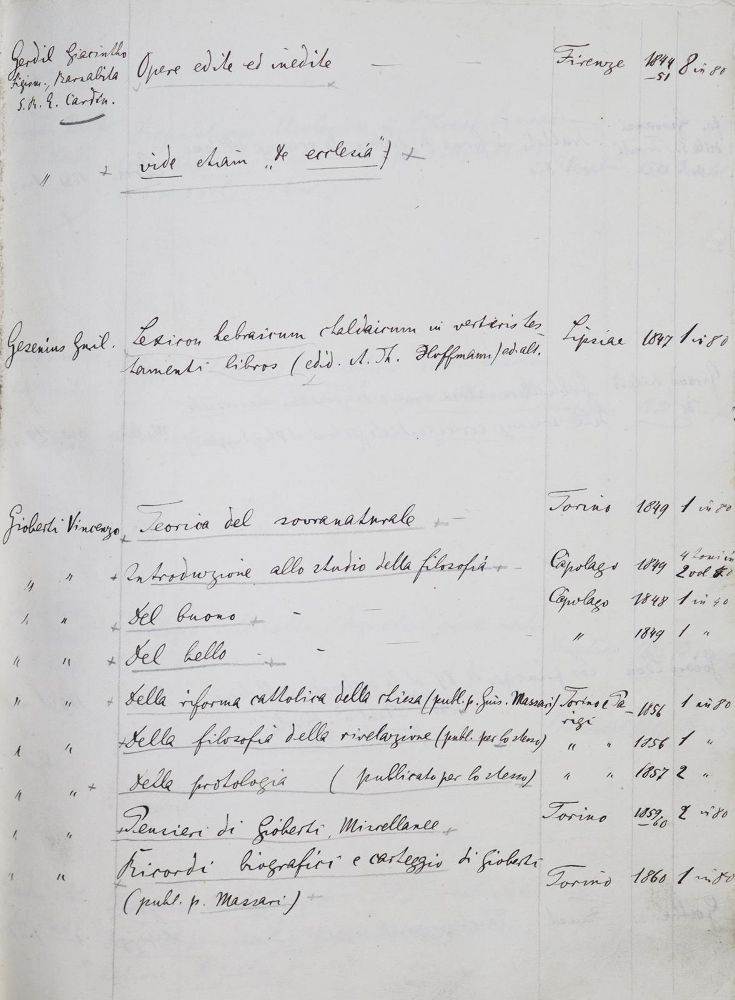 Gerdil Giacinto Opere edite ed inedite — — Firenze 1844 8 in 80
Sigism., Barnabita -51
S. R. E. Cardin.
" vide etiam „de ecclesia")
Gesenius Guil. Lexicon hebraicum chaldaicum in veteris tes- Lipsiae 1847 1 in 80
tamenti libros (edid. A. Th. Hoffmann) ed. alt.
Gioberti Vincenzo Teorica del sovranaturale — Torino 1849 1 in 80
" " Introduzione allo studio della filosofia - Capolago 1849 4 tomi in
2 vol 80
" " Del buono - — Capolago 1848 1 in 40
" " Del bello - - — " 1849 1 "
" " Della riforma cattolica della chiesa (publ. p. Gius. Massari) Torino e Pa- 1856 1 in 80
rigi
" " Della filosofia della rivelazione (publ. per lo stesso) " " 1856 1 "
" " Della protologia ( publicato per lo stesso) " " 1857 2 "
" " Pensieri di Gioberti, Miscellanee Torino 1859/60 2 in 80
" " Ricordi biografici e carteggio di Gioberti
(publ. p. Massari) Torino 1860 1 in 80